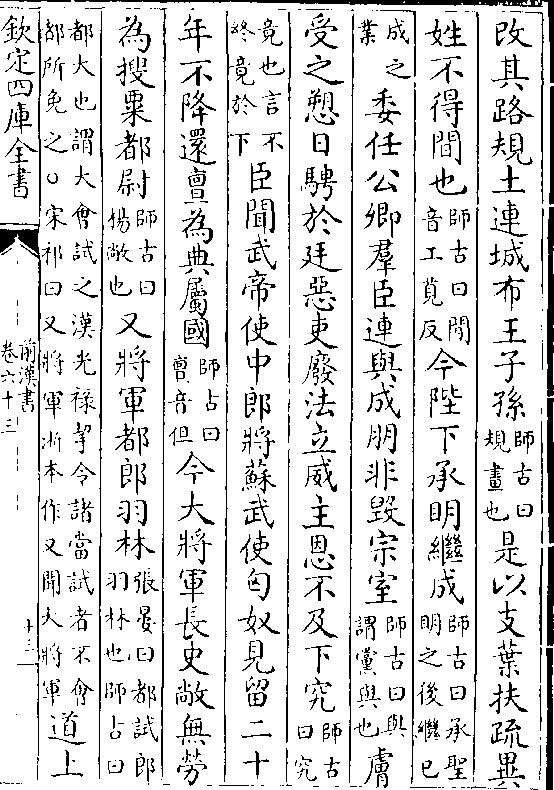 改其路規土連城布王子孫師古曰規畫也是以支葉扶疏異
姓不得間也師古曰間音工莧反今陛下承明繼成師古曰承聖明之後繼已
成之業委任公卿羣臣連與成朋非毀宗室師古曰與謂黨與也膚
受之愬日騁於廷惡吏廢法立威主恩不及下究師古曰究
竟也言不終竟於下臣聞武帝使中郎將蘇武使匈奴見留二十
年不降還亶為典屬國師古曰亶音但今大將軍長史敞無勞
為搜粟都尉師古曰楊敞也又將軍都郎羽林張晏曰都試郎羽林也師古曰
都大也謂大會試之漢光禄挈令諸當試者不會都所免之○宋祁曰又將軍浙本作又聞大將軍道上
欽定四庫全書
前漢書
卷六十三
十三